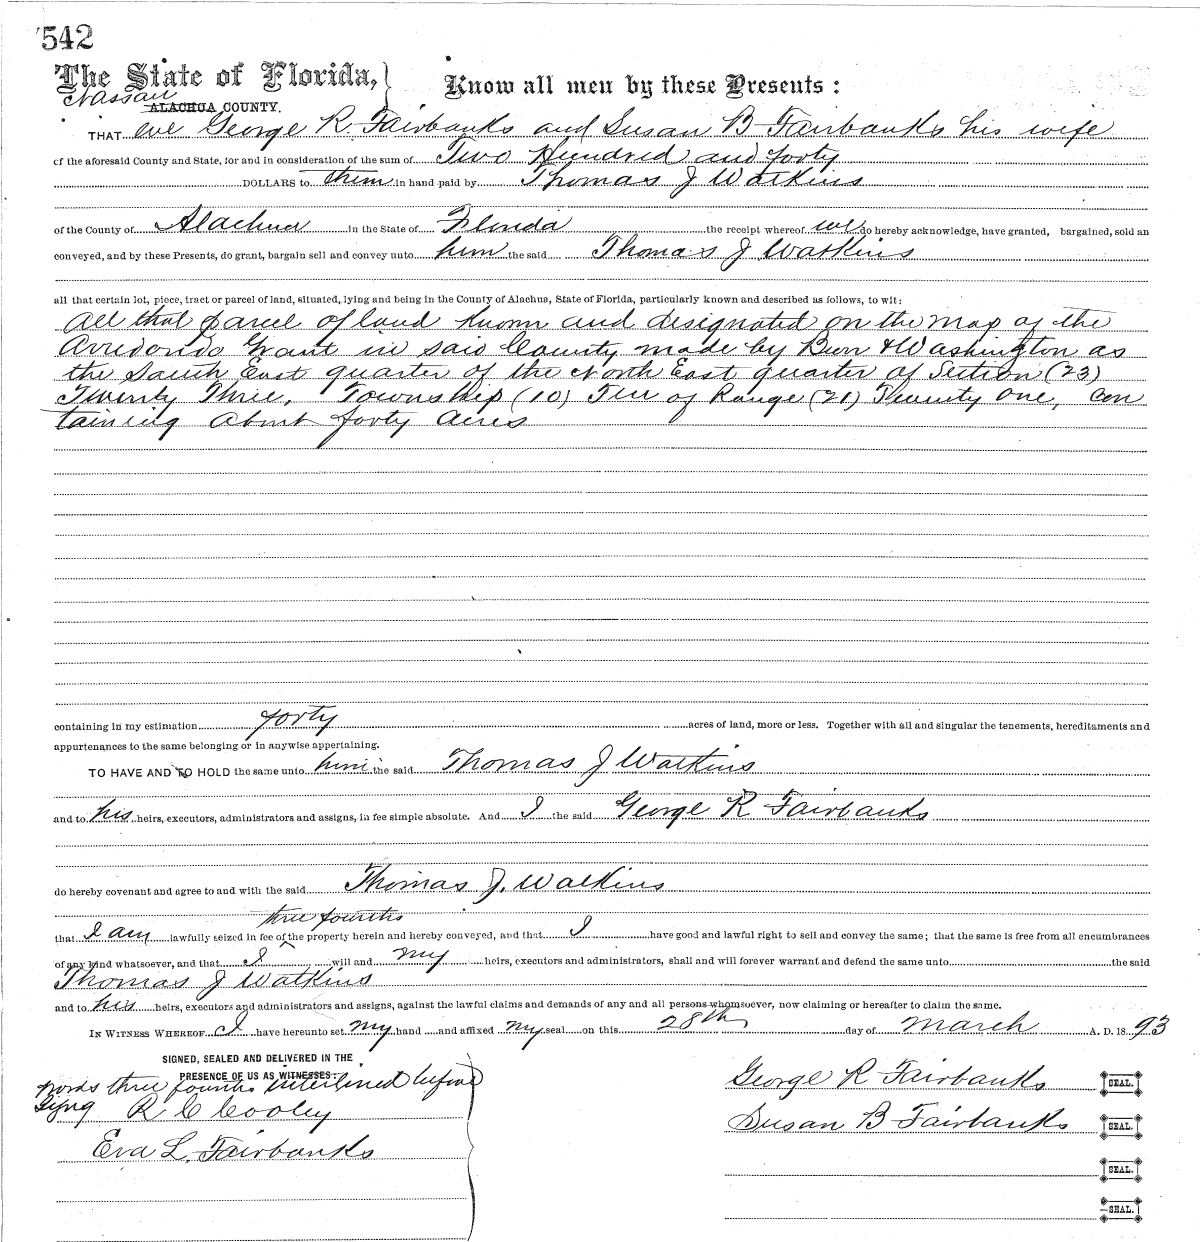 542
The State of Florida,
Know all men by these Presents:
Nassau
ALACHUA COUNTY.
THAT we George R. Fairbanks and Susan B Fairbanks his wife
of the aforesaid County and State, for and in consideration of the sum of Two Hundred and forty
DOLLARS to them in hand paid by Thomas J Watkins
of the County of Alachua in the State of Florida the receipt whereof we do hereby acknowledge, have granted, bargained, sold an
conveyed, and by these Presents, do grant, bargain sell and convey unto him the said Thomas J Watkins
all that certain lot, piece, tract or parcel of land, situated, lying and being in the County of Alachua, State of Florida, particularly known and described as follows, to wit:
All that parcel of land known and designated on the map of the
Arredondo Grant in said County made by Burr & Washington as
the South East quarter of the North East quarter of Section (23)
Twenty Three, Township (10) Ten of Range (21) Twenty One, Con
taining about forty acres
containing in my estimation forty acres of land, more or less. Together with all and singular the tenements, hereditaments and
appurtenances to the same belonging or in anywise appertaining.
TO HAVE AND TO HOLD the same unto him the said Thomas J Watkins
and to his heirs, executors, administrators and assigns, in fee simple absolute. And I the said George R Fairbanks
do hereby covenant and agree to and with the said Thomas J. Watkins
three fourths
that I am lawfully seized in fee of the property herein and hereby conveyed, and that I have good and lawful right to sell and convey the same; that the same is free from all encumbrances
of any kind whatsoever, and that I will and my heirs, executors and administrators, shall and will forever warrant and defend the same unto the said
Thomas J Watkins
and to his heirs, executors and administrators and assigns, against the lawful claims and demands of any and all persons whomsoever, now claiming or hereafter to claim the same.
IN WITNESS WHEREOF I have hereunto set my hand and affixed my seal on this 28th day of March A. D. 18 93
SIGNED, SEALED AND DELIVERED IN THE
PRESENCE OF US AS WITNESSES:
words three fourths interlined before
signg R C Cooley
Eva L. Fairbanks
George R Fairbanks SEAL.
Susan B Fairbanks SEAL.
SEAL.
SEAL.